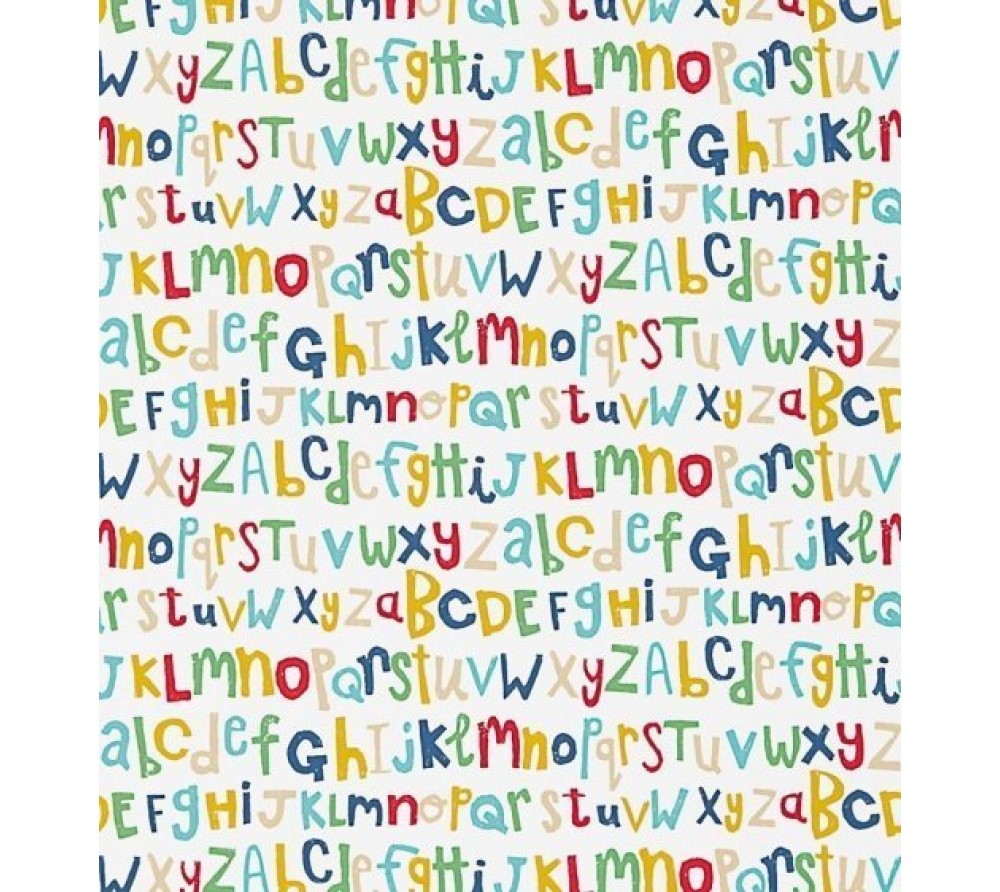 gHiJKLmnoPQrstuvWXyzaBCD
WXyZAbCdefgHiJKLmnoPQrstuv
mnoPqrSTuvwxyZabCdefGhIjkℓm
rstuvWXyzaBCDEFgHiJKLmnoPQ
JKLmnoPQrstuvWXyZAbCdefgHi
abCdefGhIjkℓmnoPqrSTuvwxyZ
DEFgHiJKLmnoPQrstuvWXyzaBCD
WXyZAbCdefgHiJKLmnoPQrstuv
mnoPqrSTuvwxyZabCdefGhIjkℓm
rstuvWXyzaBCDEFgHiJKLmnoPQ
JKLmnoPQrstuvWXyZAbCdefgHi
abCdefGhIjkℓmnoPqrSTuvwxyZ
DEFgHiJKLmnoPQrstuvWXyzaBCD
WXyZAbCdefgHiJKLmnoPQrstuv